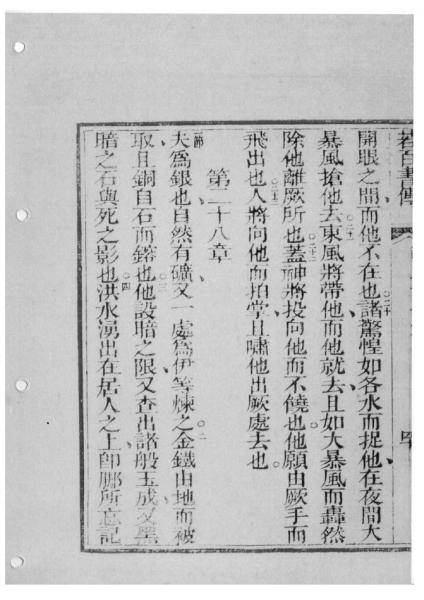 若百書傳
開眼之間而他不在也○二十諸驚惶如各水而捉他在夜間大
暴風搶他去○二十一東風將帶他而他就去且如大暴風而轟然
除他離厥所也○二十二蓋神將投向他而不饒也他願由厥手而
飛出也○二十三人將向他而拍掌且嘯他出厥處去也
第二十八章
一節夫為銀也自然有礦又一處為伊等煉之金○二鐵由地而被
取且銅自石而鎔也○三他設暗之限又查出諸般玉成及黑
暗之石與死之影也○四洪水湧出在居人之上卽腳所忘記